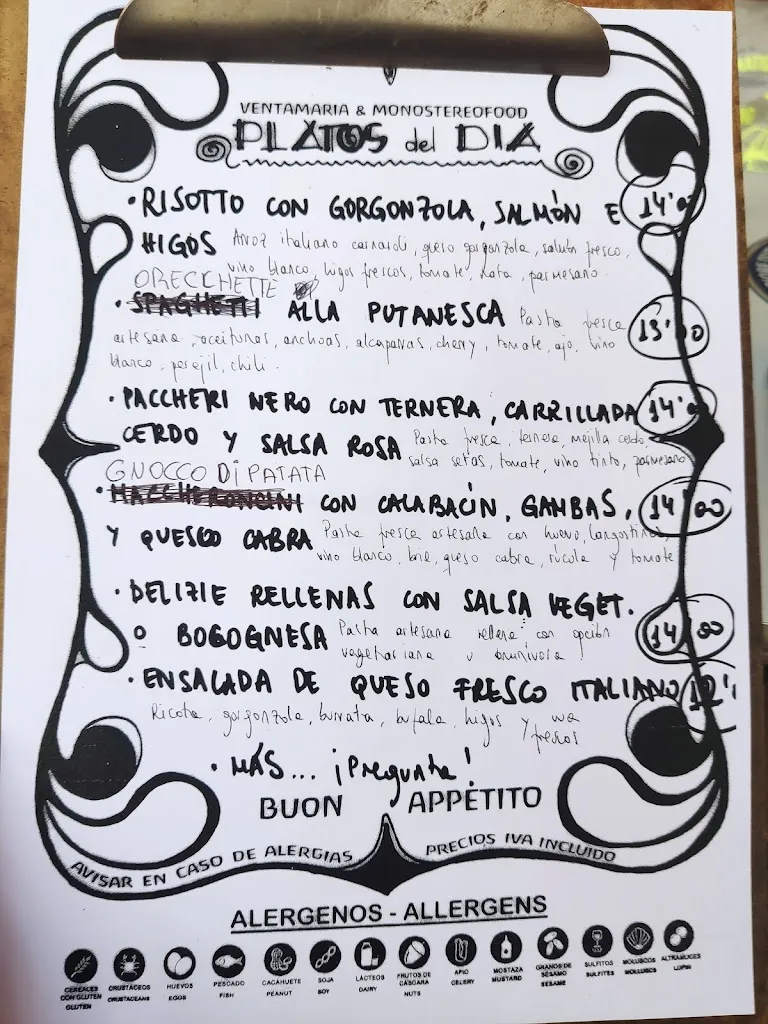 VENTAMARIA & MONOSTEREOFOOD
PLATOS del DIA
• RISOTTO CON GORGONZOLA, SALMÓN E 14'00
HIGOS Arroz italiano carnaroli, queso gorgonzola, salmón fresco,
vino blanco, higos frescos, tomate, nata, parmesano.
ORECCHETTE
• SPAGHETTI ALLA PUTANESCA Pasta fresca 13'00
artesana, aceitunas, anchoas, alcaparras, cherry, tomate, ajo, vino
blanco, perejil, chili.
• PACCHERI NERO CON TERNERA, CARRILLADA 14'00
CERDO Y SALSA ROSA Pasta fresca, ternera, mejilla cerdo,
salsa setas, tomate, vino tinto, parmesano
GNOCCO DI PATATA
• MACCHERONCINI CON CALABACÍN, GAMBAS, 14'00
Y QUESCO CABRA Pasta fresca artesana con huevo, langostinos,
vino blanco, brie, queso cabra, rúcula y tomate
• DELIZIE RELLENAS CON SALSA VEGET. 14'00
O BOGOGNESA Pasta artesana rellena con opción
vegetariana u omnivora!
• ENSALADA DE QUESO FRESCO ITALIANO 12'
Ricota, gorgonzola, burrata, bufala, higos y uva
frescos
• MÁS... ¡Pregunta!
BUON APPÉTITO
AVISAR EN CASO DE ALERGIAS PRECIOS IVA INCLUIDO
ALERGENOS - ALLERGENS
CEREALES CON GLUTEN GLUTEN
CRUSTÁCEOS CRUSTACEANS
HUEVOS EGGS
PESCADO FISH
CACAHUETE PEANUT
SOJA SOY
LÁCTEOS DAIRY
FRUTOS DE CÁSCARA NUTS
APIO CELERY
MOSTAZA MUSTARD
GRANOS DE SÉSAMO SÉSAME
SULFITOS SULFITES
MOLUSCOS MOLLUSCS
ALTRAMUCES LUPIN